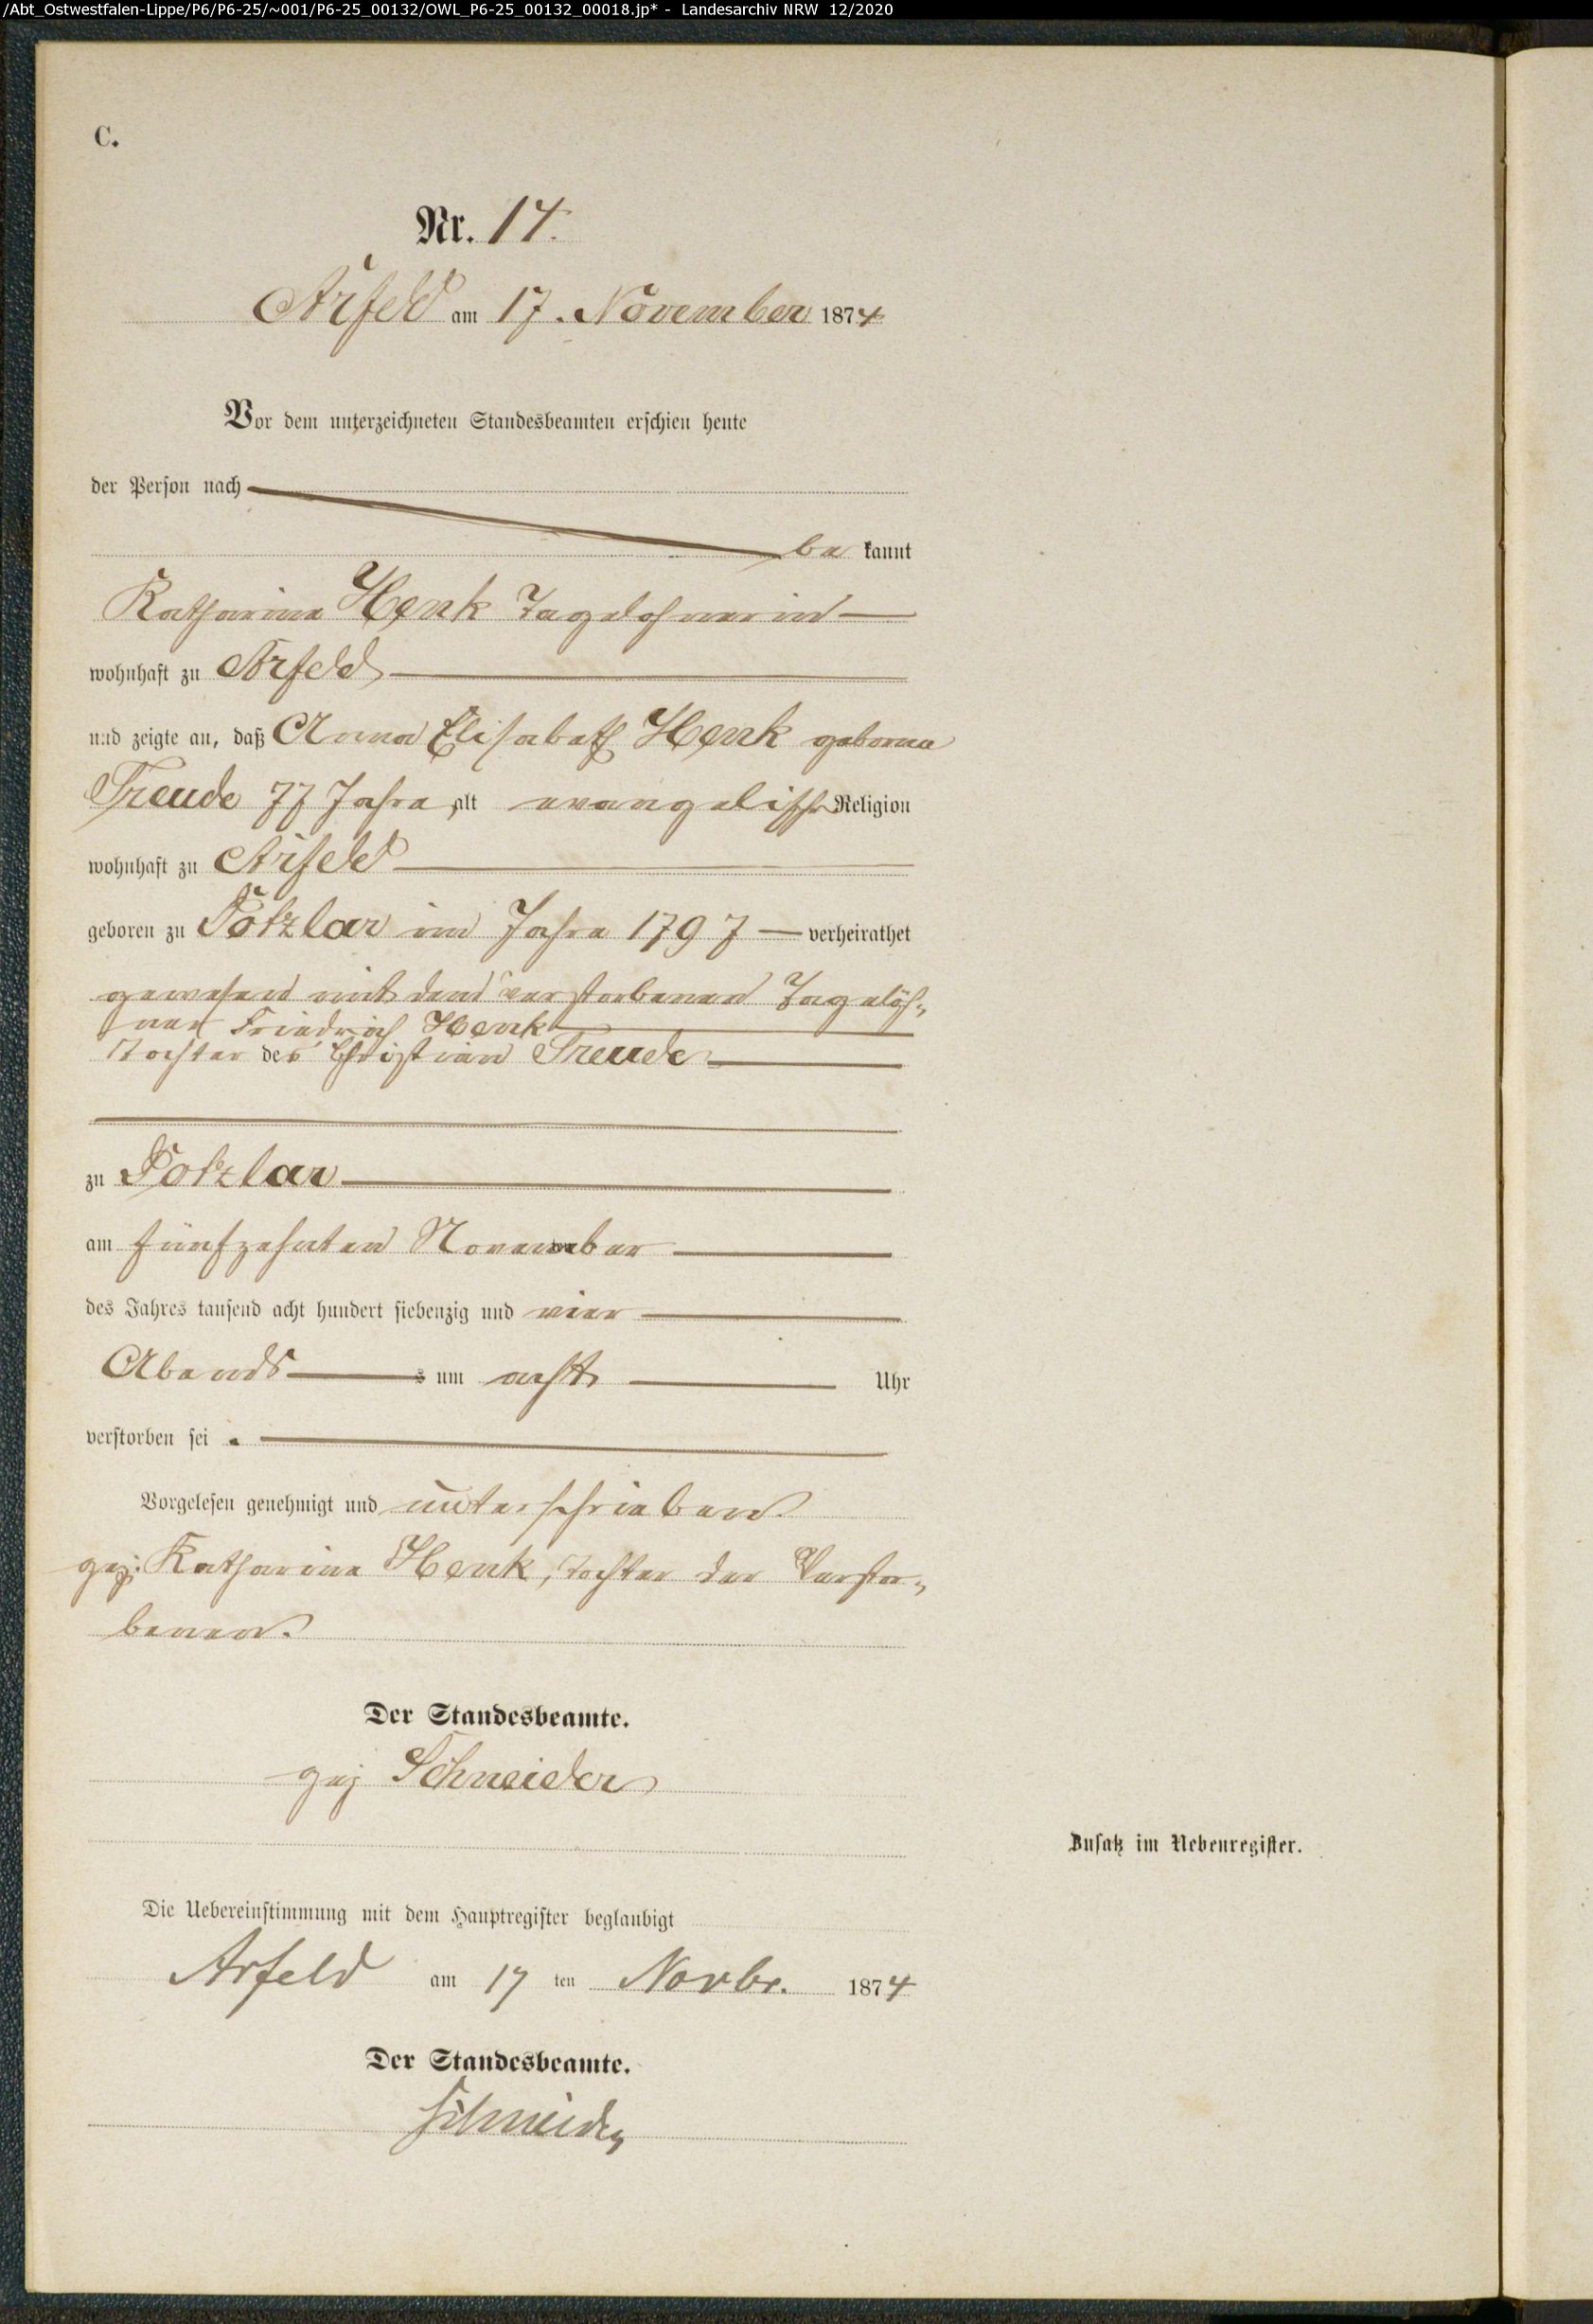 /Abt_Ostwestfalen-Lippe/P6/P6-25/~001/P6-25_00132/OWL_P6-25_00132_00018.jp* - Landesarchiv NRW 12/2020
C.
Nr. 14.
Arfeld am 17. November 1874
Vor dem unterzeichneten Standesbeamten erschien heute
der Person nach
be kannt
Katharina Henk Tagelohnerin
wohnhaft zu Arfeld
und zeigte an, daß Anna Elisabeth Henk geborne
Treude 77 Jahre alt evangelischer Religion
wohnhaft zu Arfeld
geboren zu Dotzlar im Jahre 1797 verheirathet
gewesen mit dem verstorbenen Tagelöh-
ner Friedrich Henk
Tochter des Christian Treude
zu Dotzlar
am fünfzehnten November
des Jahres tausend acht hundert siebenzig und vier
Abends um acht Uhr
verstorben sei.
Vorgelesen genehmigt und unterschrieben
gez: Katharina Henk, Tochter der Verstor-
benen.
Der Standesbeamte.
gez Schneider
Zusatz im Nebenregister.
Die Uebereinstimmung mit dem Hauptregister beglaubigt
Arfeld am 17 ten Novbr. 1874
Der Standesbeamte.
Schneider